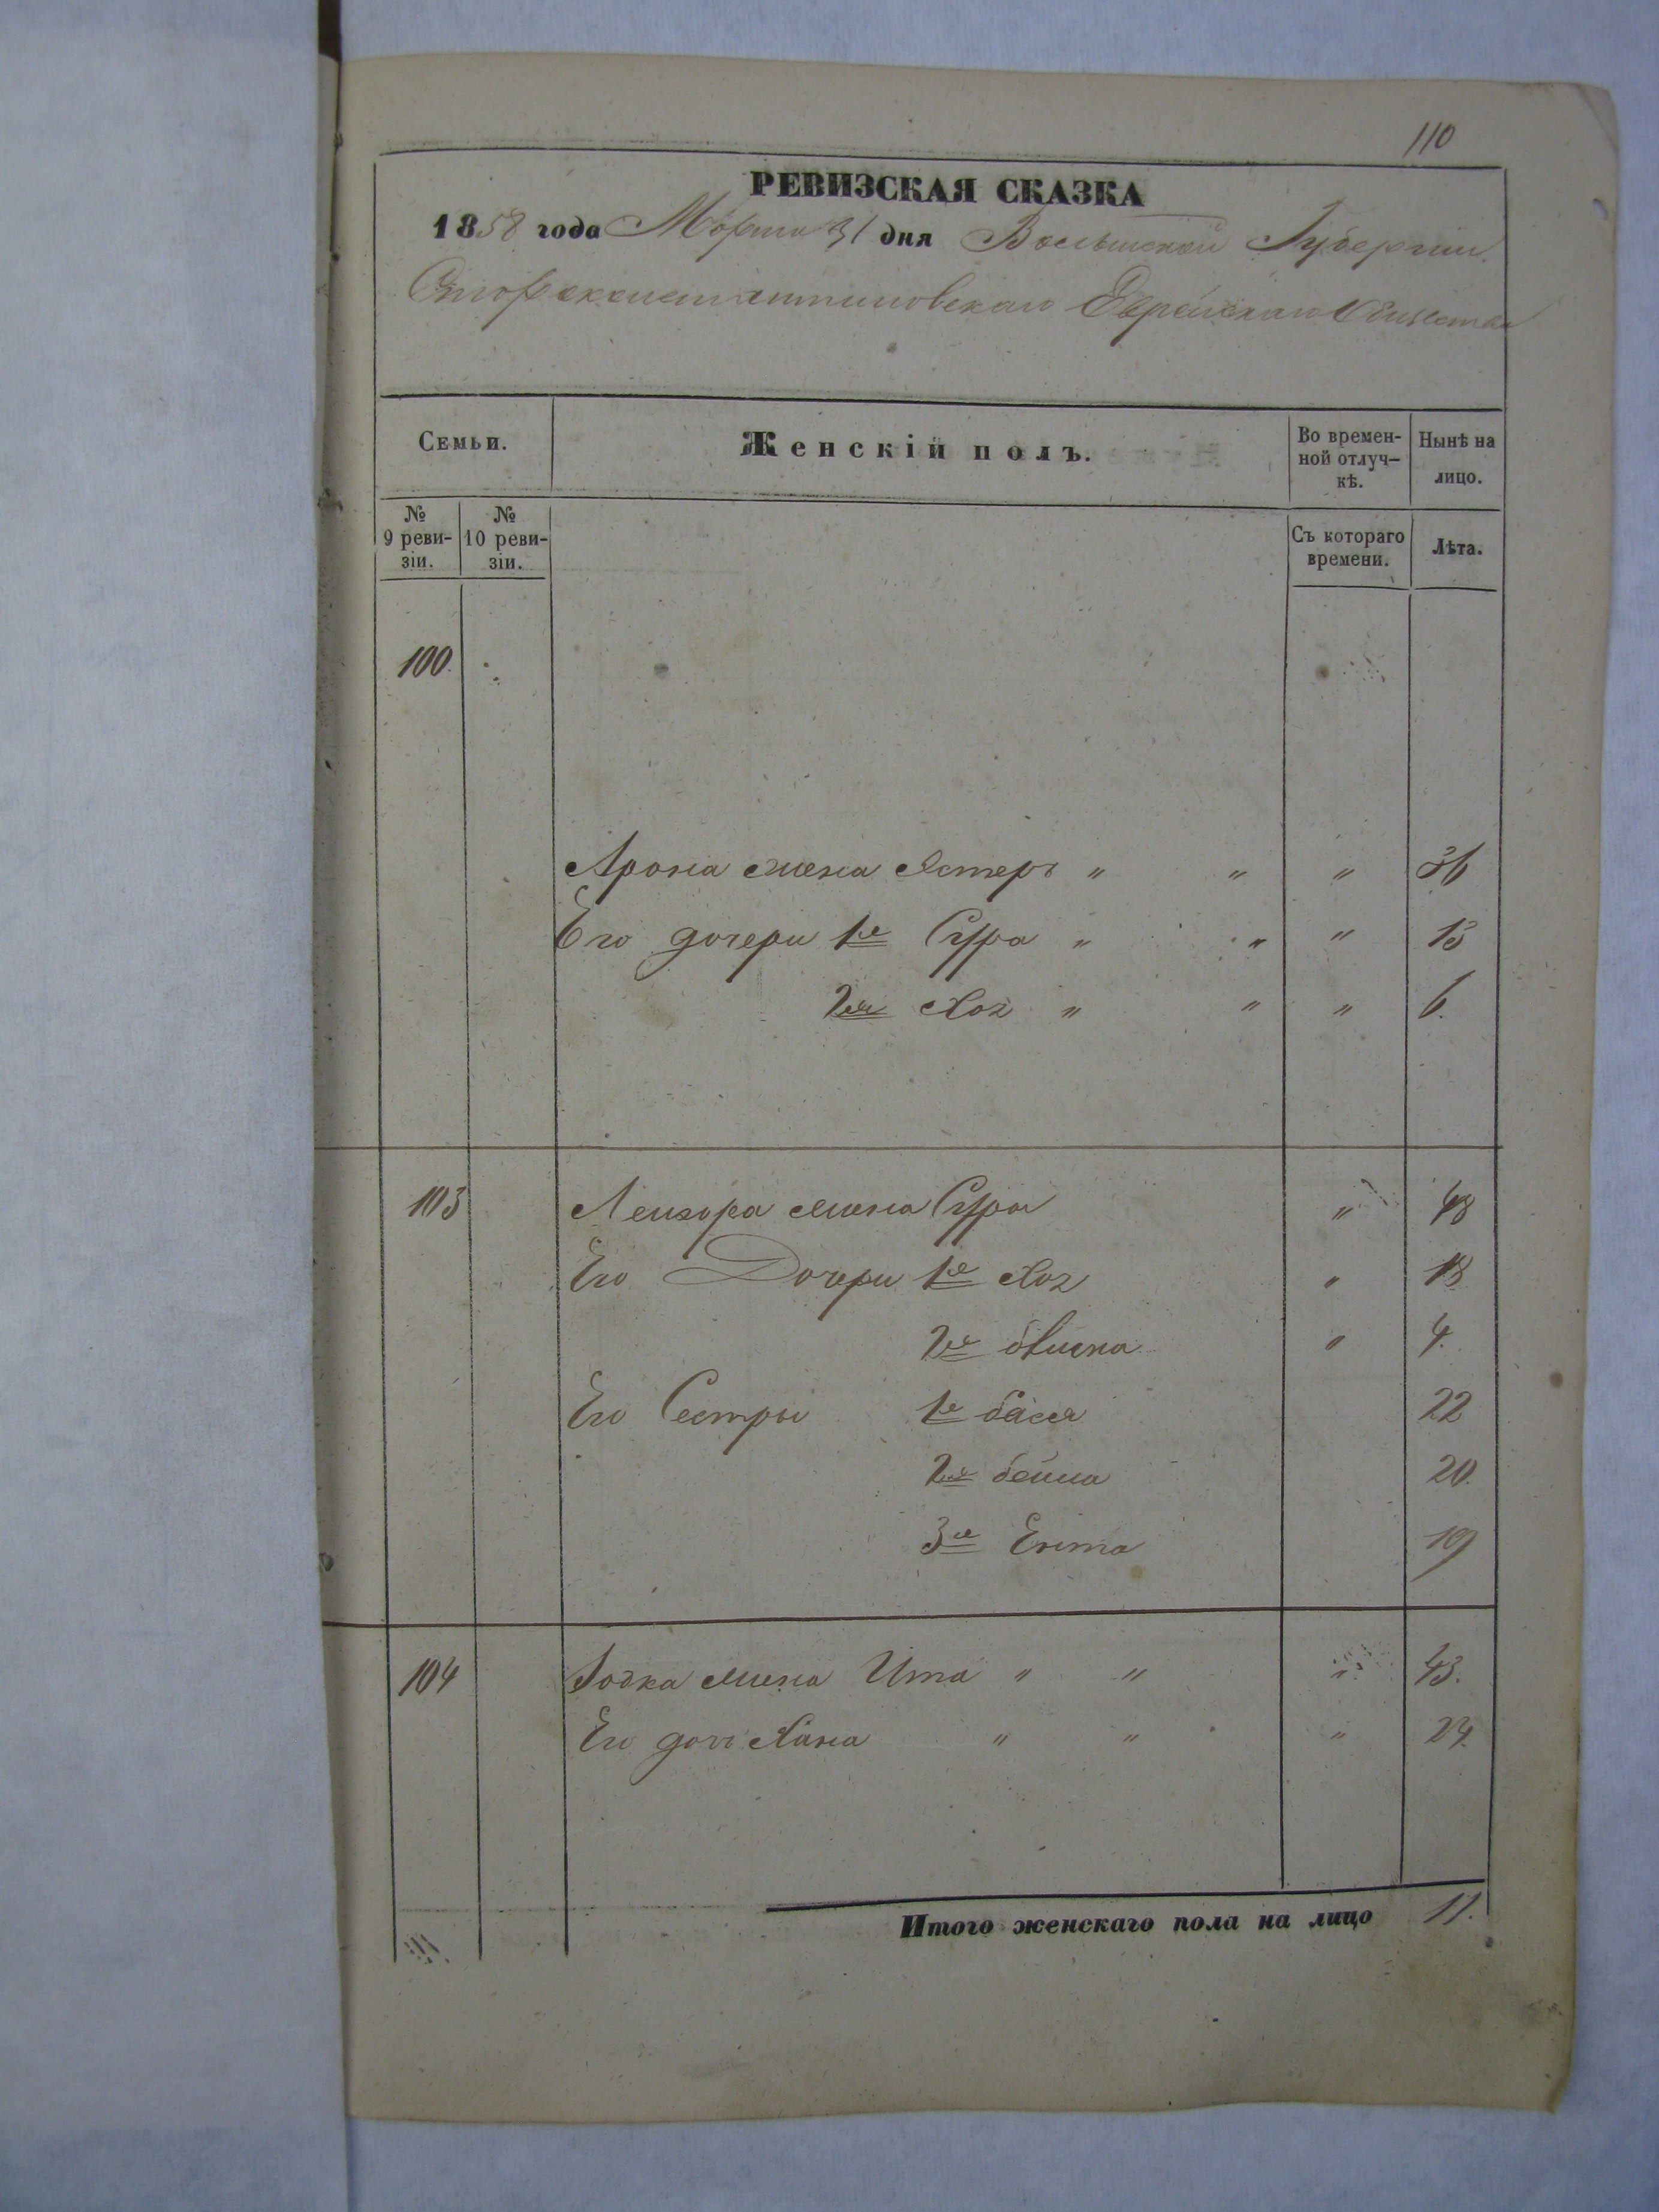 110
РЕВИЗСКАЯ СКАЗКА
1858 года Марта 31 дня Волынской Губернии
Старокенстантиновскаго Еврейскаго Общества
Семьи. Женскій полъ. Во времен- Нынѣ на
ной отлуч- лицо.
кѣ.
№ № Съ котораго Лѣта.
9 реви- 10 реви- времени.
зіи. зіи.
100.
Арона жена Эстеръ " " " 36
Его дочери 1я Сура " " " 13
2я Хая " " " 6.
103 Лейзора жена Сура " 48
Его Дочери 1я Хая " 18
2я " 4.
Его Сестры 1я бася 22
2я бейла 20.
3я Ента 19
104 жена Ита " " " 43.
Его дочь Хана " " " 24.
Итого женскаго пола на лицо 11.